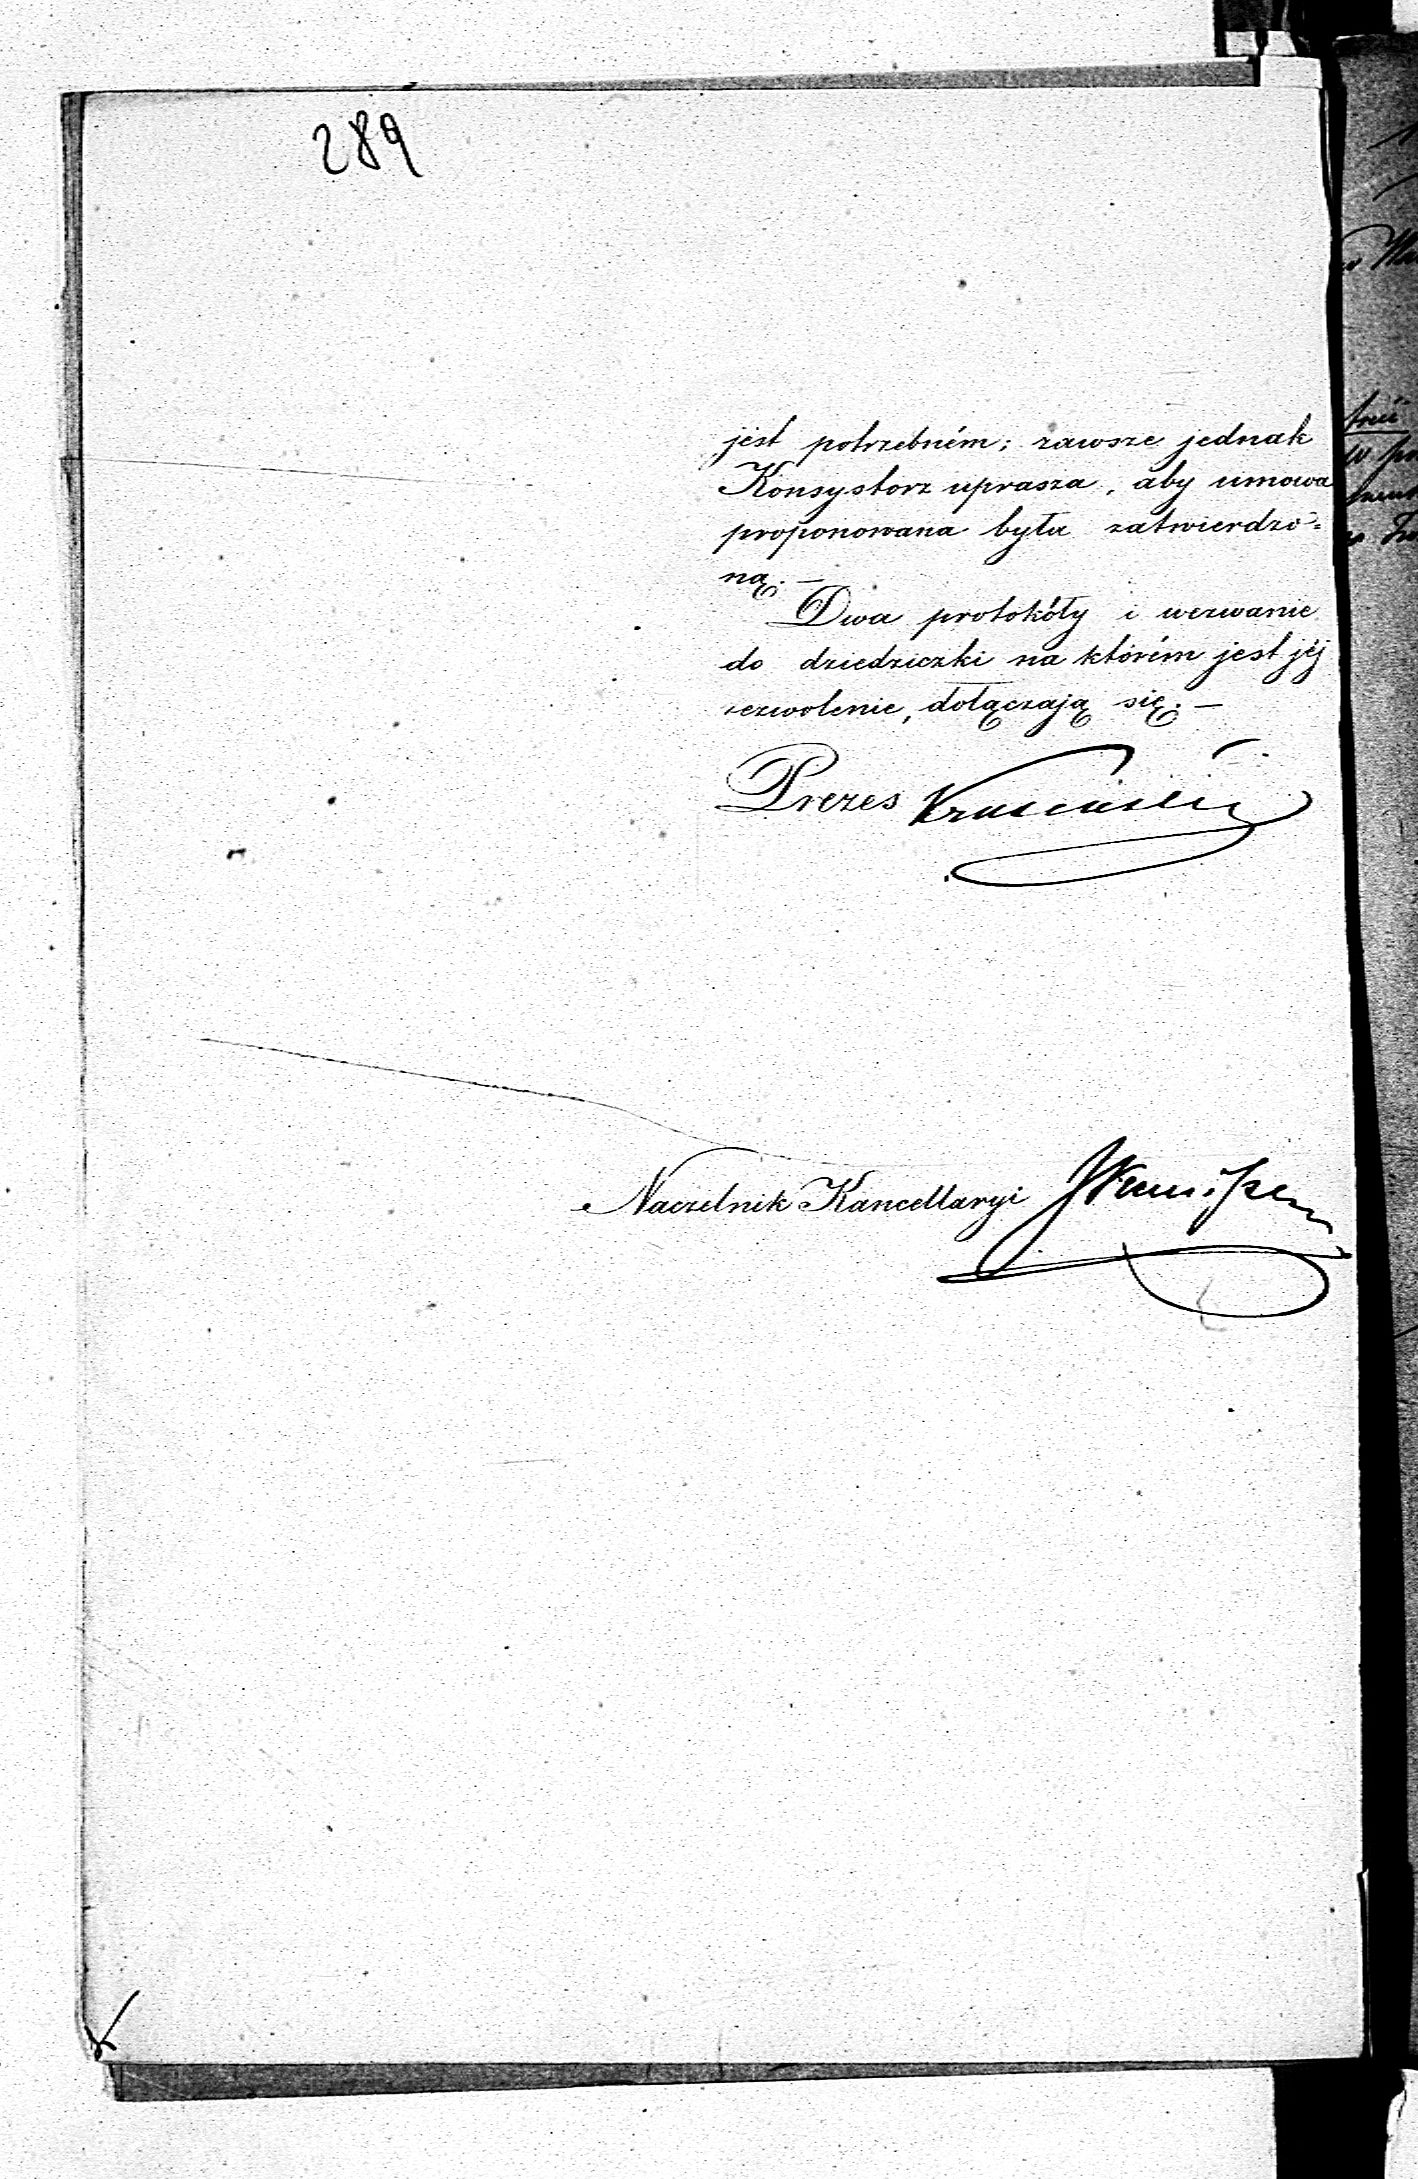 289
jest potrzebném; zawsze jednak
Konsystorz uprasza, aby umowa
proponowana była zatwierdzo=
ną. —
Dwa protokóły i wezwanie
do dziedziczki na którém jest jéj
zezwolenie, dołączają się. —
Prezes
Naczelnik Kancellaryi